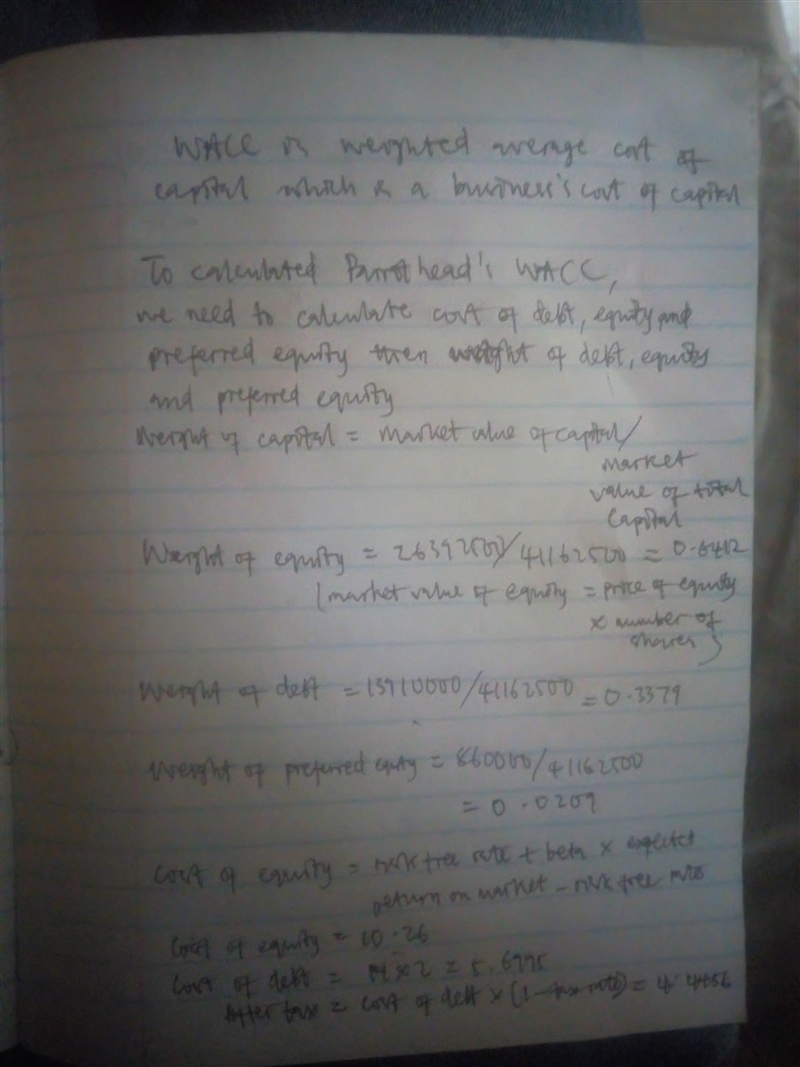 WACC is weighted average cost of
capital which is a business's cost of capital
To calculated Parrothead's WACC,
we need to calculate cost of debt, equity and
preferred equity then weight of debt, equity
and preferred equity
Weight of capital = market value of capital/
market
value of total
capital
Weight of equity = 26392500/41162500 = 0.6412
(market value of equity = price of equity
x number of
shares)
Weight of debt = 13910000/41162500 = 0.3379
Weight of preferred equity = 860000/41162500
= 0.0209
Cost of equity = risk free rate + beta x expected
return on market - risk free rate
Cost of equity = 10.26
Cost of debt = x 2 = 5.6995
After tax = cost of debt x (1 - tax rate) = 4.4456